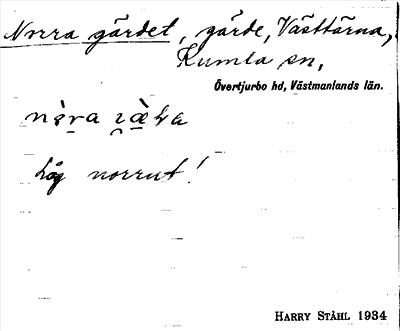 Norra gärdet, gärde, Västtärna,
Kumla sn,
Övertjurbo hd, Västmanlands län.
låg norrut!
HARRY STÅHL 1934